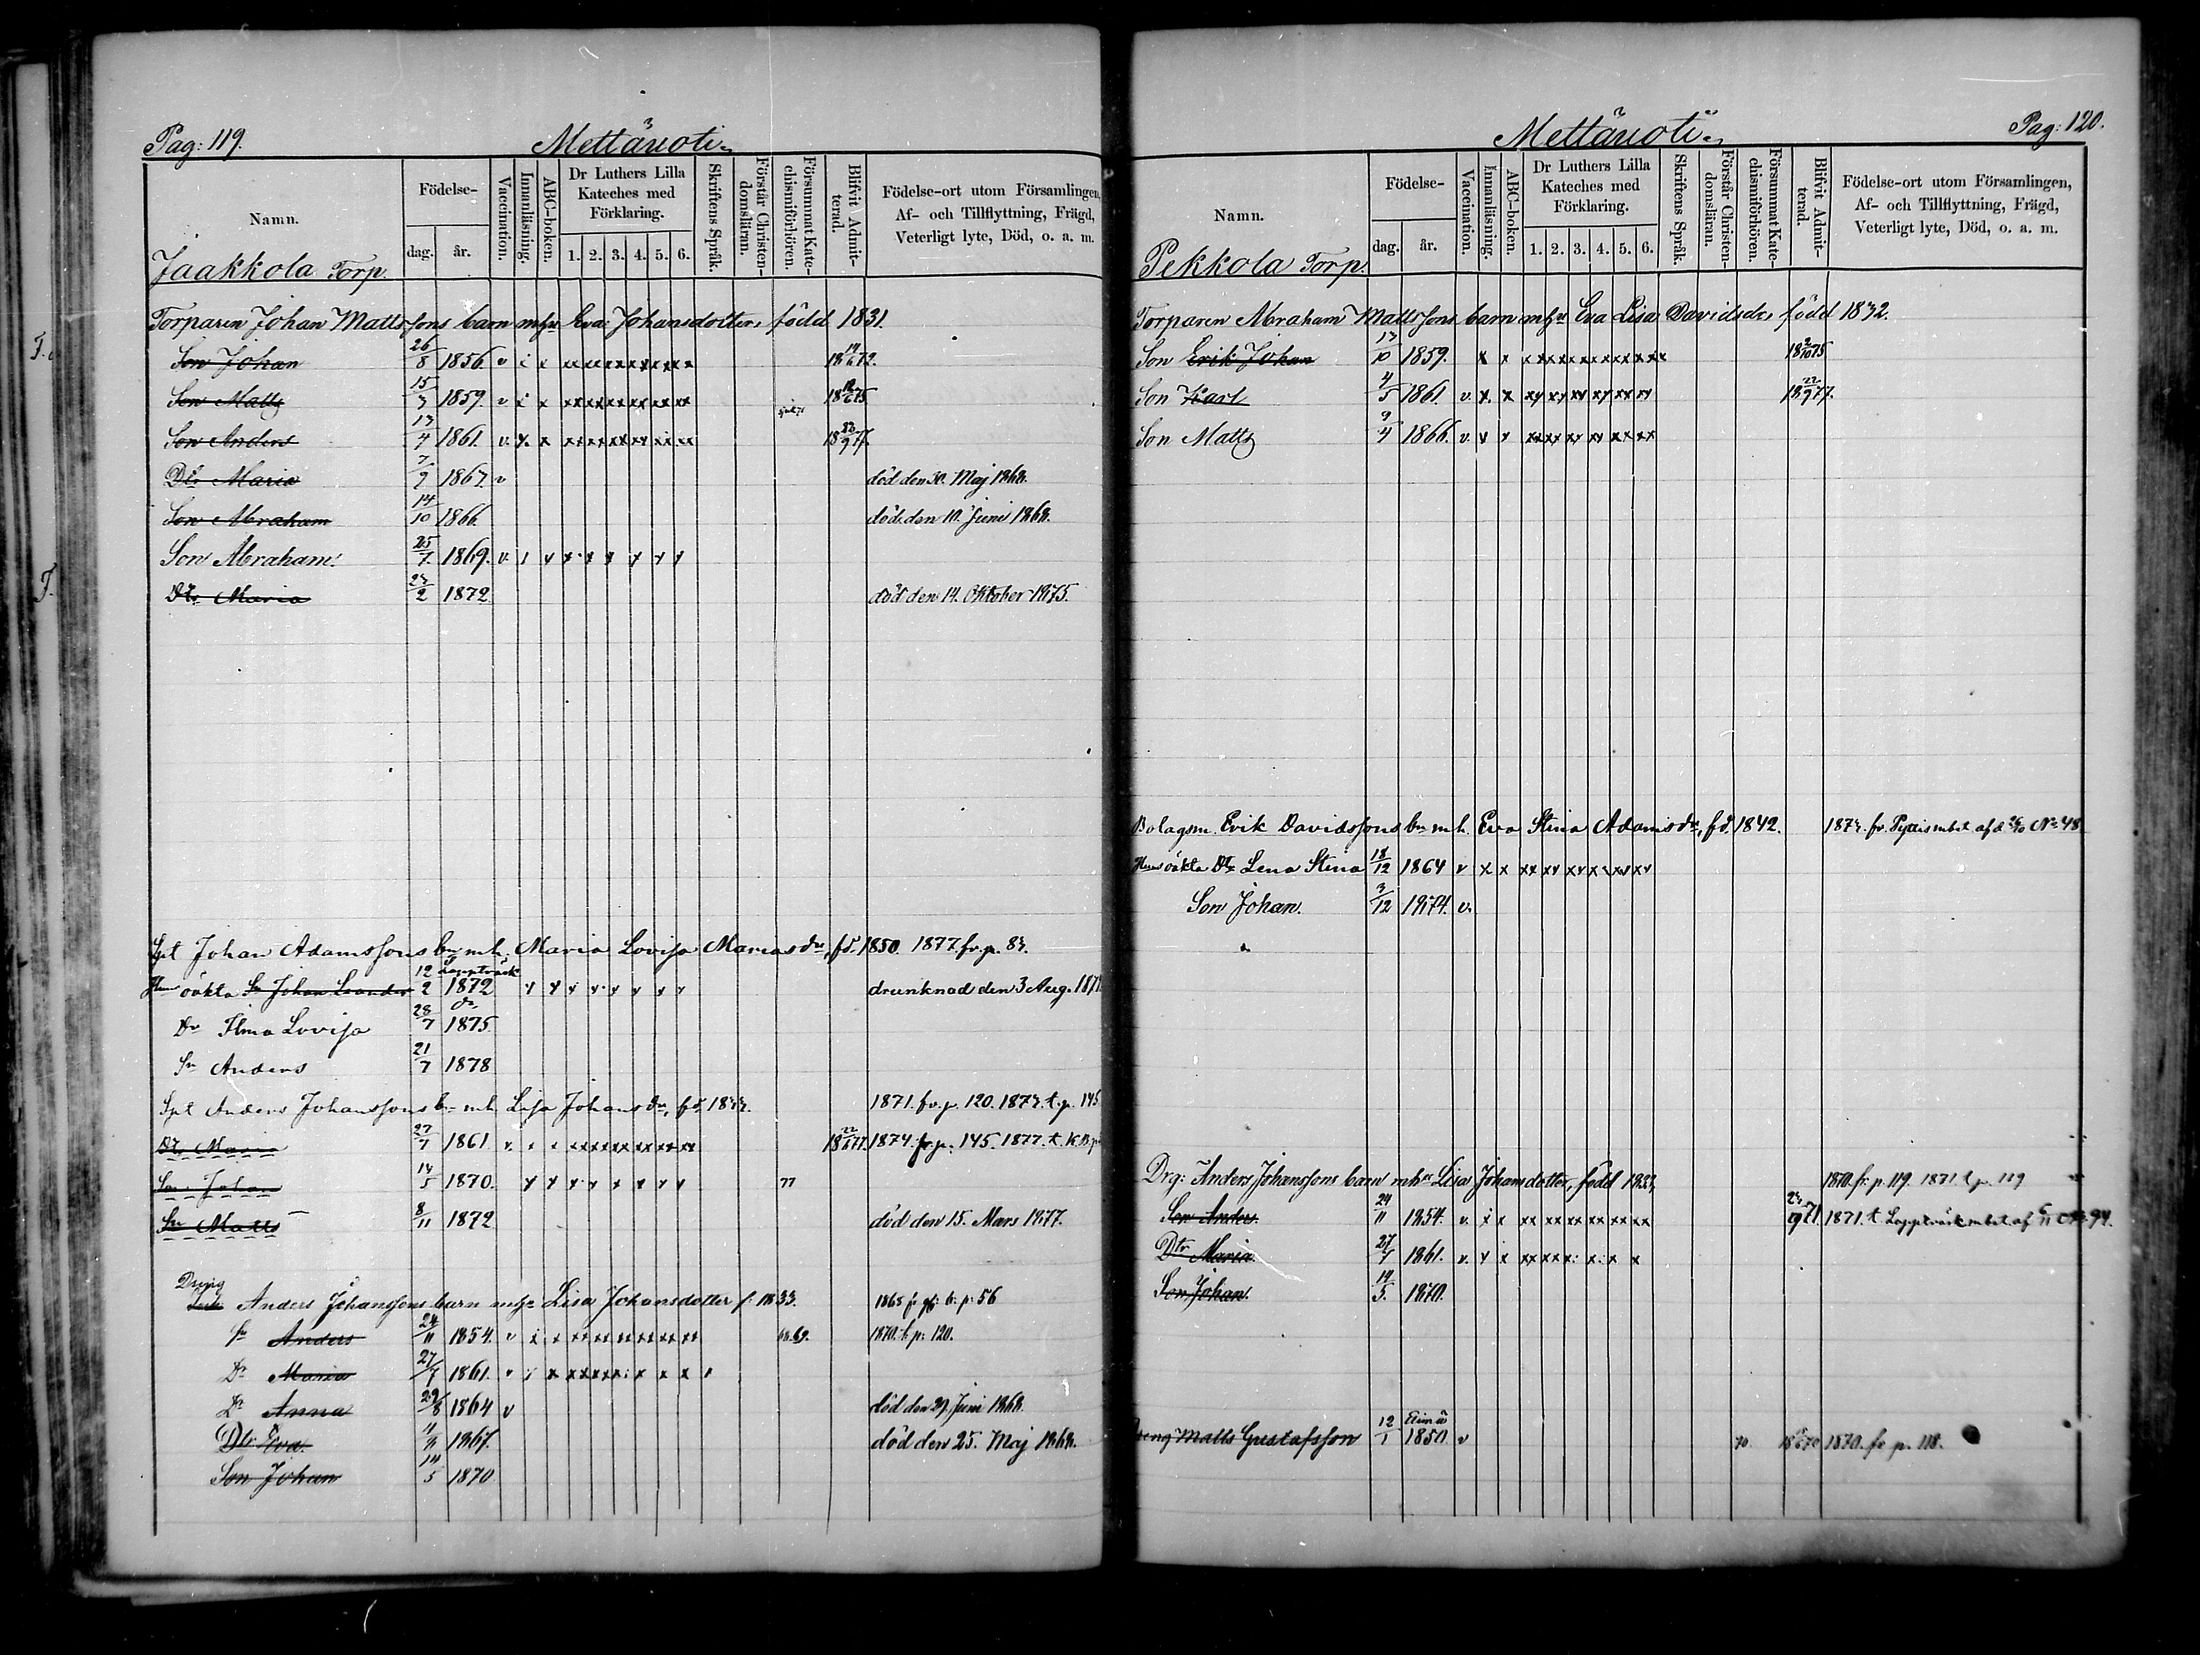 Pag: 119.
Mettänoti
Namn.
Födelse-
dag.
år.
Vaccination.
Innanläsning.
ABC-boken.
Dr Luthers Lilla Kateches med Förklaring.
1. 2. 3. 4. 5. 6.
Skriftens Språk.
Förstår Christendomsläran.
Försummat Katechismiförhören.
Blifvit Admitterad.
Födelse-ort utom Församlingen, Af- och Tillflyttning, Frägd, Veterligt lyte, Död, o. a. m.
Jaakkola Torp.
Torparen Johan Mattssons barn m hu Eva Johansdotter född 1831.
Son Johan 26/8 1856. v
Son Matts 15/3 1859. v
Son Anders 13/4 1861. v
Dtr Maria 7/9 1867. v död den 30. Maj 1868.
Son Abraham 14/10 1866. död den 10. Juni 1868.
Son Abraham 25/7 1869. v
Dtr Maria 23/2 1872 död den 14. Oktober 1875.
Spt Johan Adamssons bn mh. Maria Lovisa Mariasdr, fd. 1850. 1877. fr. p. 83.
oäkta Sn Johan Leander 12/2 Lappträsk 1872 drunknad den 3 Aug.
Dr Ilma Lovisa 28/7 do 1875.
Sn Anders 21/7 1878
Spt Anders Johanssons bn mh Lisa Johansdr, fd. 1833. 1871. fr. p. 120. 1873. t. p. 145
Dtr Maria 27/7 1861 v. 1874. fr. p. 145. 1877. t. K.B. p.
Son Johan 14/5 1870. 77
Sn Matts 8/11 1872 död den 15. Mars 1877.
Dreng
Anders Johanssons barn m hu Lisa Johansdotter f. 1833. p. 56
Sn Anders 24/11 1854. v 68. 69. 1870. t. p. 120.
Dr Maria 27/7 1861. v
Dr Anna 29/8 1864 v död den 29. Juni 1868.
Dtr Eva 1867. död den 25. Maj 1868.
Son Johan 14/5 1870
Pag: 120.
Mettänoti
Namn.
Födelse-
dag.
år.
Vaccination.
Innanläsning.
ABC-boken.
Dr Luthers Lilla Kateches med Förklaring.
1. 2. 3. 4. 5. 6.
Skriftens Språk.
Förstår Christendomsläran.
Försummat Katechismiförhören.
Blifvit Admitterad.
Födelse-ort utom Församlingen, Af- och Tillflyttning, Frägd, Veterligt lyte, Död, o. a. m.
Pekkola Torp.
Torparen Abraham Mattssons barn m hu Eva Lisa Davidsdr född 1832.
Son Erik Johan 13/10 1859.
Son Karl 4/5 1861. v 18 22/9 77.
Son Matts 9/4 1866. v
Bolagsm. Erik Davidssons bn mh. Eva Stina Adamsdr, fd. 1842. 1873. fr. Pyttis mbet af d. No 48
oäkta Dtr Lena Stina 18/12 1864 v
Son Johan. 3/12 1874. v.
Drg: Anders Johanssons barn mhu Lisa Johansdotter, född 1833, 1870. fr. p. 119. 1871 t. p. 119
Son Anders. 24/11 1854. v. 1871. t. Lappträsk mbet af No 94.
Dtr Maria. 27/7 1861. v.
Son Johan. 14/5. 1870.
Dreng Matts Gustafsson 12/1 Elimä 1850 v 70. 1870. fr. p. 118.